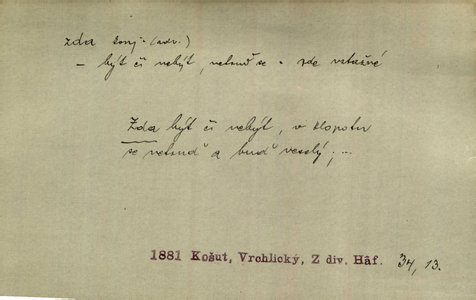 zda konj. (adv.)
– být či nebýt, netruď se - zde vztažné
Zda být či nebýt, v klopotu
se netruď a buď veselý; ...
1881 Košut, Vrchlický, Z div. Háf. 34, 13.